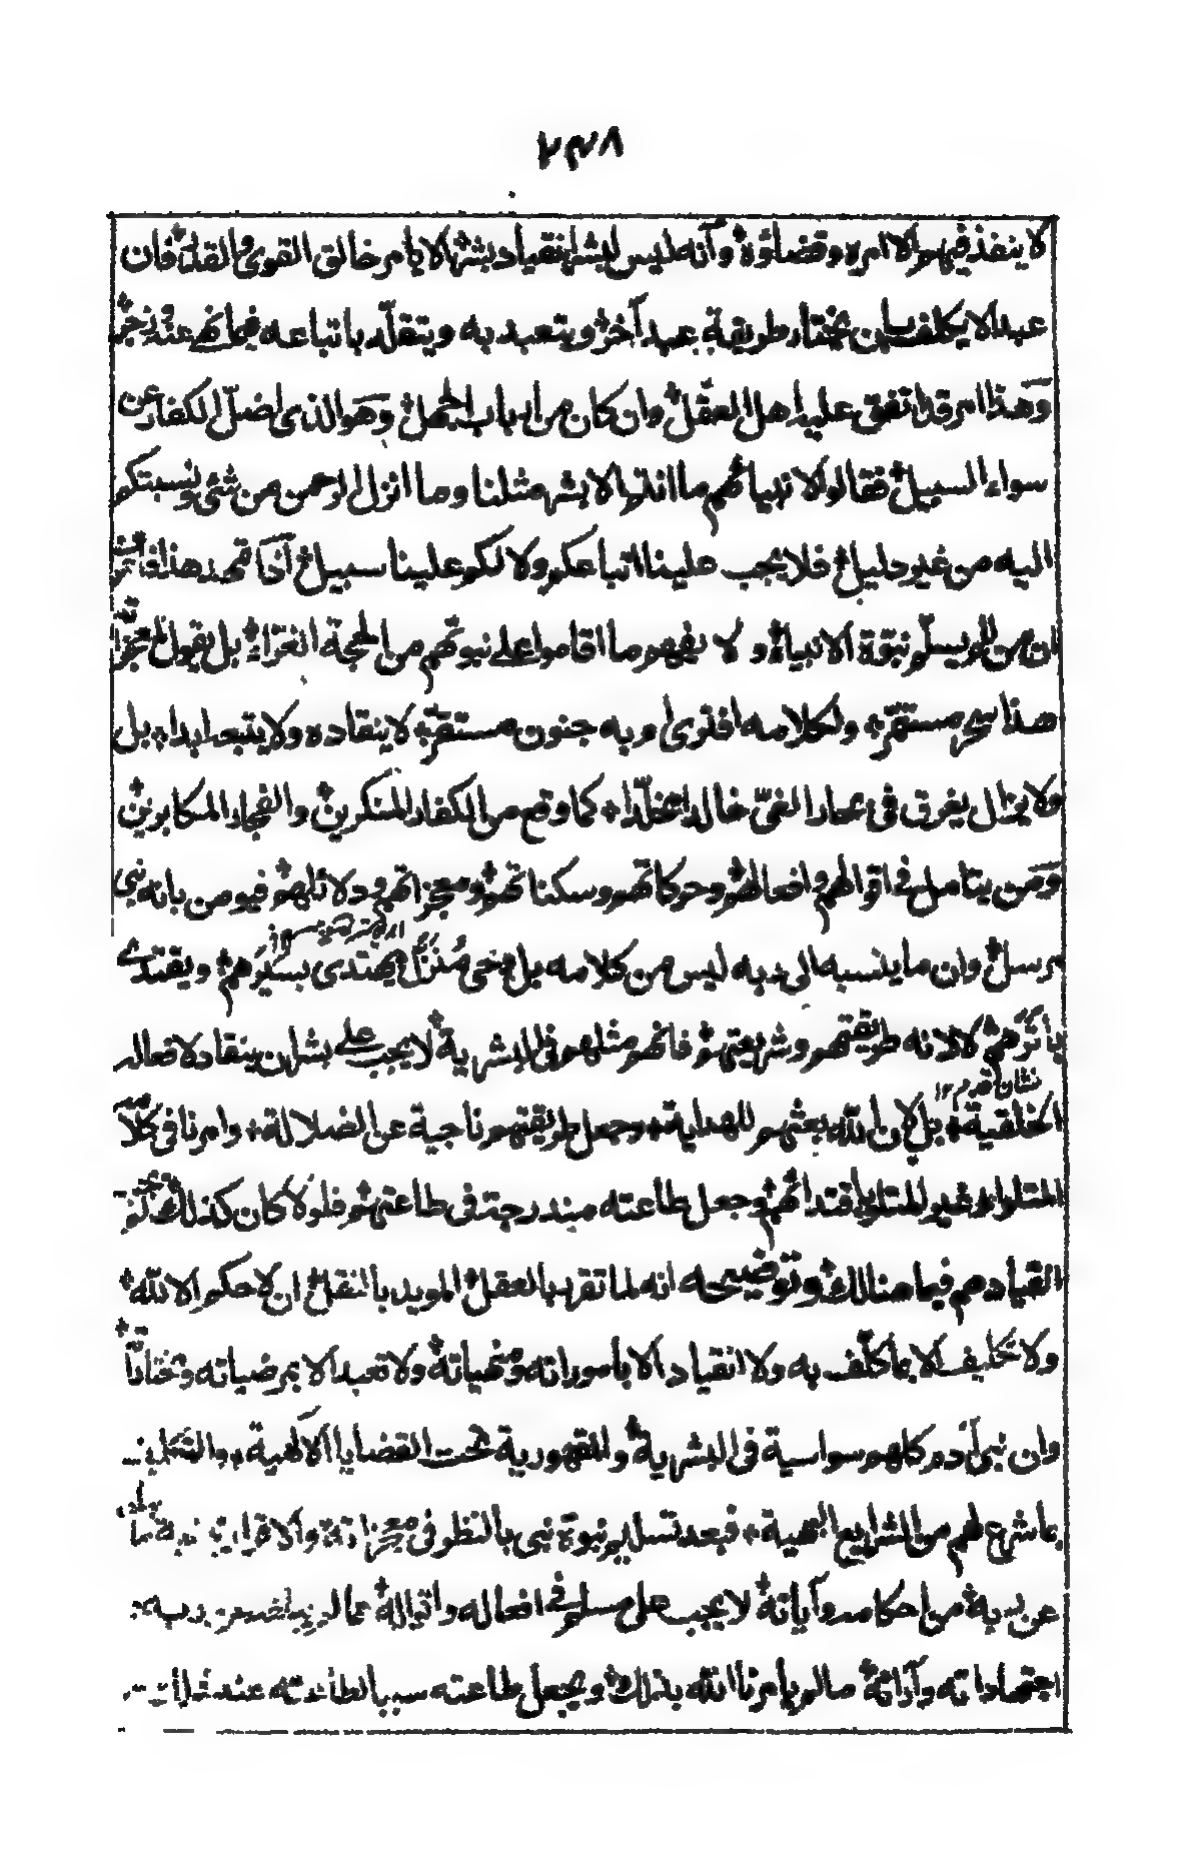 ٢٣٨
لا ينفذ فيهم الا امره وقضاؤه وانه ليس لبشر انقياد بشر الا بامر خالق القوى والقدر فان
عبدا لا يكلف بان يختار طريقة عبد آخر ويتعبد به ويتقلد باتباعه فيما نهى عنه وزجر
وهذا امر قد اتفق عليه اهل العقل وان كان من ارباب الجهل وهو الذى اضل الكفار عن
سواء السبيل فقالوا لانبيائهم ما انتم الا بشر مثلنا وما انزل الرحمن من شئ ونسبتكم
اليه من غير دليل فلا يجب علينا اتباعكم ولا لكم علينا سبيل اذا تمهد هذا
ان من لم يسلم نبوة الانبياء ولا يفهم ما اقاموا على نبوتهم من الحجة الغراء بل يقول
هذا سحر مستمر ولكلامه افترى ام به جنون مستقر لا ينقاده ولا يتبعه ابدا بل
ولا يزال يغرق فى بحار الغى خالدا مخلدا كما وقع من الكفار المنكرين والفجار المكابرين
ومن يتامل فى اقوالهم وافعالهم وحركاتهم وسكناتهم ومعجزاتهم ودلائلهم فيومن بانه نبى
مرسل وان ما ينسبه الى ربه ليس من كلامه بل وحى منزل يهتدى بسيرهم ويقتدى
بأثرهم لا لانه طريقتهم وشريعتهم فانهم مثلهم فى البشرية لا يجب على بشر ان ينقاد لافعاله
نشان قدم ١٢
الخلقية بل لان الله بعثهم للهداية وجعل طريقتهم ناجية عن الضلالة وامرنا فى كلامه
المتلو وغير المتلو باقتدائهم وجعل طاعته مندرجة فى طاعتهم فلولا كان كذلك لم يجز
انقيادهم فيما هنالك وتوضيحه انه لما تقرر بالعقل المويد بالنقل ان لا حكم الا لله
ولا تكليف الا بما كلف به ولا انقياد الا بامورراته ومنهياته ولا تعبد الا بمرضياته ومختاراته
وان نبى آدم كلهم سواسية فى البشرية والمقهورية تحت القضايا الالهية والتكليف
بما شرع لهم من الشرايع البهية فبعد تسليم نبوة نبى بالنظر فى معجزاته والاقرار
عن ربه من احكامه وآياته لا يجب على مسلم فى افعاله واقواله مما لم ياخذه من ربه
اجتهاداته وآرائه ما لم يامرنا الله بذلك ويجعل طاعته سببا لطاعته عند ذلك